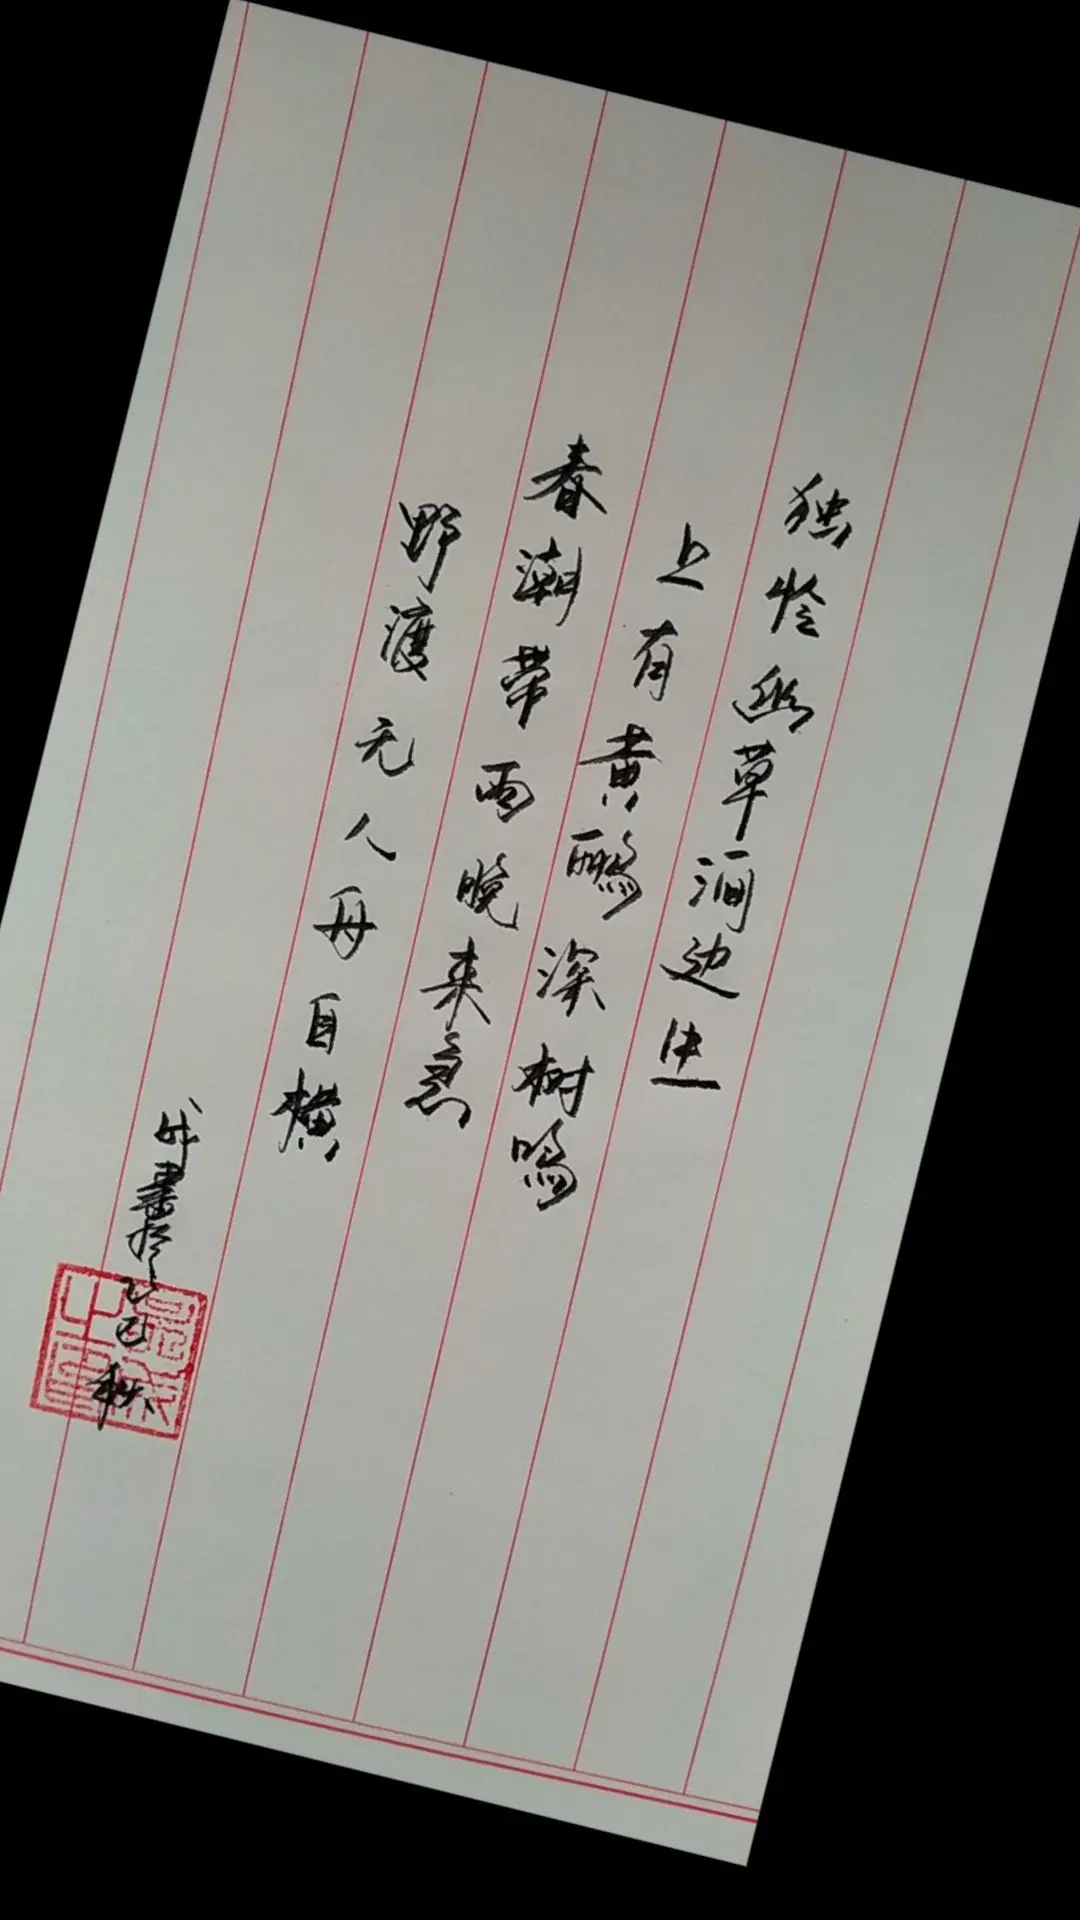 独怜幽草涧边生
上有黄鹂深树鸣
春潮带雨晚来急
野渡无人舟自横
书于乙巳秋